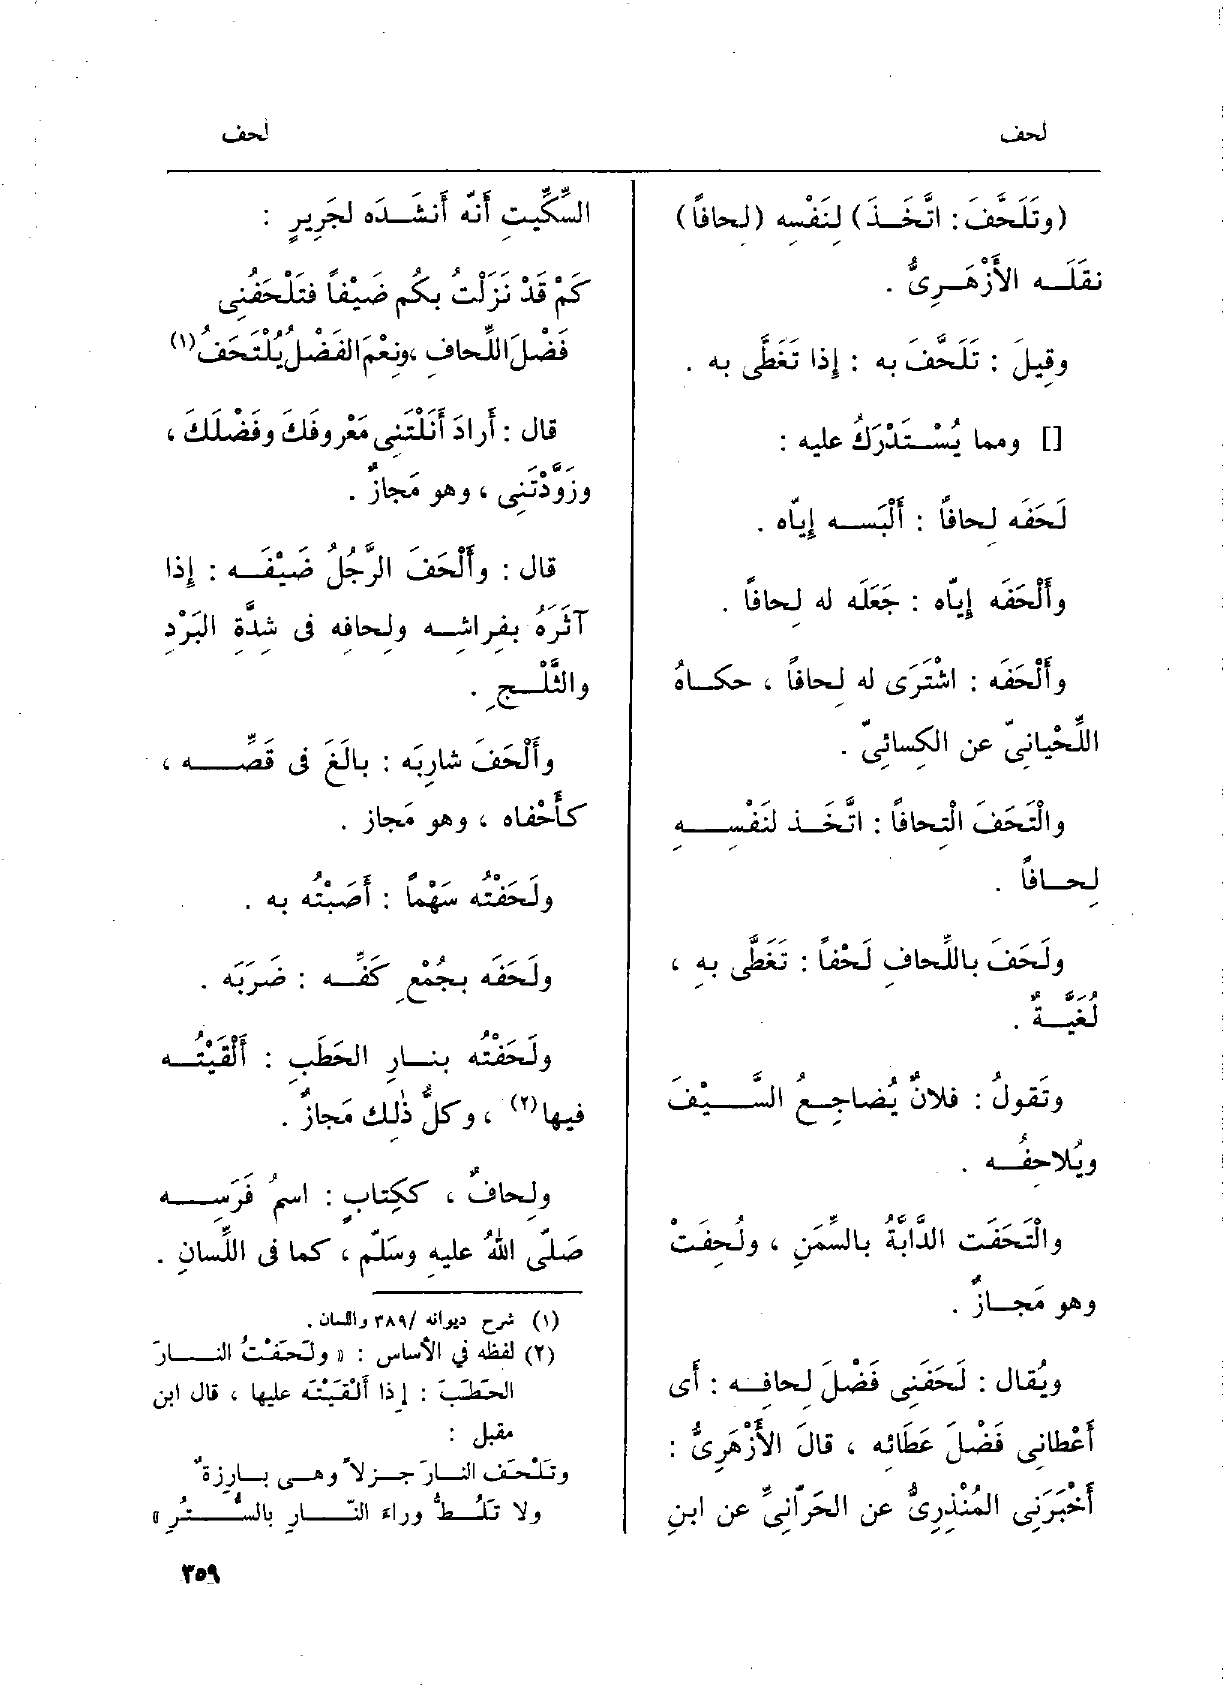 لحف
لحف
(وتَلَحَّفَ : اتَّخَـذَ) لِنَفْسِه (لِحافاً)
نقَلَـه الأَزْهَـرِىُّ .
وقِيلَ : تَلَحَّفَ به : إِذا تَغَطَّى به .
[] ومما يُسْـتَدْرَكُ عليه :
لَحَفَه لِحافاً : أَلْبَسـه إِيّاه .
وأَلْحَفَه إِيّاه : جَعَلَه له لِحافاً .
وأَلْحَفَه : اشْتَرَى له لِحافاً ، حكـاهُ
اللِّحْيانِىّ عن الكِسائِىّ .
والْتَحَفَ الْتِحافاً : اتَّخَـذ لنَفْسِـه
لِحـافاً .
ولَحَفَ باللِّحافِ لَحْفاً : تَغَطَّى بهِ ،
لُغَيَّـةٌ .
وتَقولُ : فلانٌ يُضاجِـعُ السَّـيْفَ
ويُلاحِفُـه .
والْتَحَفَت الدّابَّةُ بالسِّمَنِ ، ولُحِفَتْ
وهو مَجـازٌ .
ويُقال : لَحَفَنِى فَضْلَ لِحافِـه : أَى
أَعْطانِى فَضْلَ عَطَائه ، قالَ الأَزْهَرِىُّ :
أَخْبَرَنِى المُنْذِرِىُّ عن الحَرّانِىِّ عن ابنِ
السِّكِّيتِ أَنّه أَنشَـدَه لجَرِيرٍ :
كَمْ قَدْ نَزَلْتُ بكُم ضَيْفاً فتَلْحَفُنِى
فَضْلَ اللِّحافِ ، ونِعْمَ الفَضْلُ يُلْتَحَفُ (١)
قال : أَرادَ أَنَلْتَنِى مَعْروفَكَ وفَضْلَكَ ،
وزَوَّدْتَنِى ، وهو مَجازٌ .
قال : وأَلْحَفَ الرَّجُلُ ضَيْفَـه : إِذا
آثَرَهُ بفِراشِـه ولِحافِه فى شِدَّةِ البَرْدِ
والثَّلْـجِ .
وأَلْحَفَ شارِبَه : بالَغَ فى قَصِّـه ،
كأَحْفاه ، وهو مَجاز .
ولَحَفْتُه سَهْماً : أَصَبْتُه به .
ولَحَفَه بجُمْعِ كَفِّـه : ضَرَبَه .
ولَحَفْتُه بنـارِ الحَطَبِ : أَلْقَيْتُـه
فيها (٢) ، وكلُّ ذٰلِك مَجازٌ .
ولِحافٌ ، ككِتابٍ : اسمُ فَرَسِـه
صَلّى اللهُ عليهِ وسَلّم ، كما فى اللِّسانِ .
(١) شرح ديوانه /٣٨٩ واللسان .
(٢) لفظه في الأساس : « ولَحَفْتُ النـارَ
الحَطَبَ : إذا ألْقَيْتَه عليها ، قال ابن
مقبل :
وتَلْحَف النـارَ جـزلاً وهـى بـارِزةٌ
ولا تَلُـطُّ وراءَ النّـارِ بالسُّـتُرِ »
٣٥٩